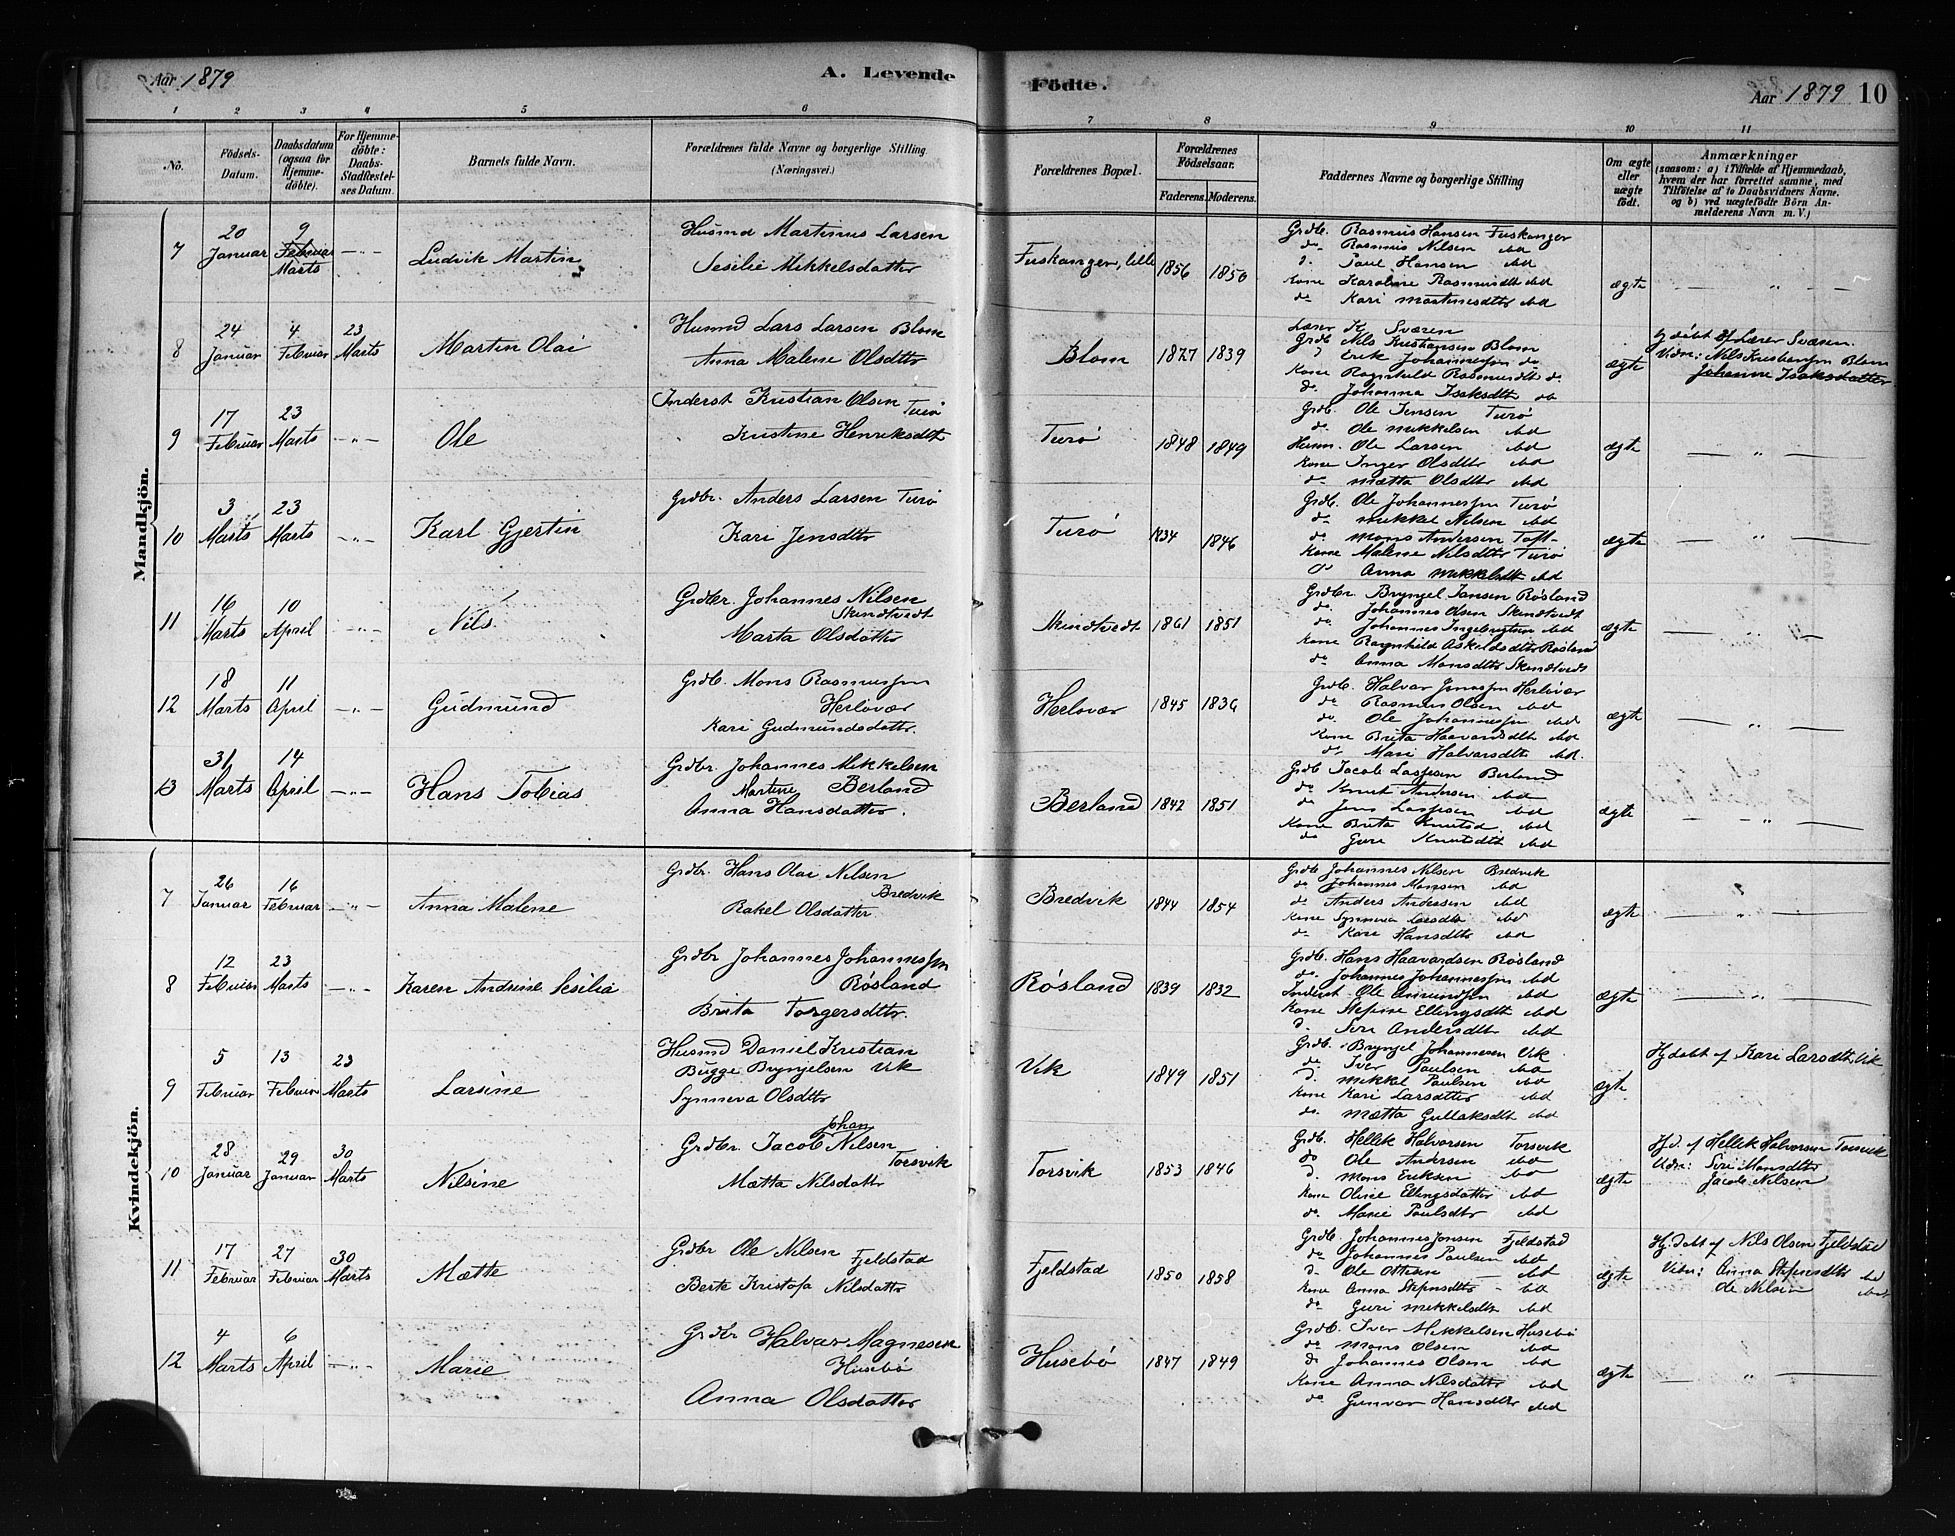 Aar 1879
A. Levende
Födte.
Aar 1879 10
1 2 3 4 5 6 7 8 9 10 11
No.
Födsels-Datum.
Daabsdatum (ogsaa for Hjemme-döbte).
For Hjemme-döbte: Daabs-Stadfæstel-ses Datum.
Barnets fulde Navn.
Forældrenes fulde Navne og borgerlige Stilling (Næringsvei.)
Forældrenes Bopæl.
Forældrenes Födselsaar.
Faderens. Moderens.
Faddernes Navne og borgerlige Stilling
Om ægte eller uægte födt.
Anmærkninger
(saasom: a) i Tilfælde af Hjemmedaab, hvem der har forrettet samme, med Tilföielse af to Daabsvidners Navne, og b) ved uægtefödte Börn An-melderens Navn m. V.)
Mandkjön.
7 20 Januar 9 Februar Marts Ludvik Martin
Husmd Martinus Larsen
Sesilie Mikkelsdatter
Fuskanger, lille 1856 1850
Grdb. Rasmus Hansen Fuskanger
do Rasmus Nilsen ibd
d. Paul Hansen ibd
Kone Karoline Rasmusdtr ibd
do Kari Martinusdtr ibd
ægte
8 24 Januar 4 Februar 23 Marts Martin Olai
Husmd Lars Larsen Blom
Anna Malene Olsdtr
Blom 1827 1839
Lærer K Sværen
Grdb Nils Kristiansen Blom
d Erik Johannessen do
Kone Ragnhild Rasmusdt do
do Johanna Isaksdtr do
ægte
Hj døbt af Lærer Sværen.
Vidn: Nils Kristiansen Blom
Johanne Isaksdatter
9 17 Februar 23 Marts Ole
Inderst Kristian Olsen Turø
Kristine Henriksdt
Turø 1848 1849
Grdb. Ole Jensen Turø
do Ole Mikkelsen ibd
Husm. Ole Larsen ibd
Kone Inger Olsdtr ibd
do Mætta Olsdtr ibd
ægte
10 3 Marts 23 Marts Karl Gjertin
Grdbr. Anders Larsen Turø
Kari Jensdtr
Turø 1834 1846
Grdb. Ole Johannessen Turø
do Mikkel Nilsen ibd
do Mons Andersen Toft
Kone Malene Nilsdtr Turø
do Anna Mikkelsdt ibd
ægte
11 16 Marts 10 April Nils
Grdbr. Johannes Nilsen
Skindtvedt
Marta Olsdatter
Skindtvedt 1861 1851
Grdbr Bryngel Jansen Røsland
do Johannes Olsen Skindtvedt
do Johannes Ingebrigtsen ibd
Kone Ragnhild Askelsdtr Røsland
do Anna Monsdtr Skindtvedt
ægte
12 18 Marts 11 April Gudmund
Grdb. Mons Rasmussen
Herlovær
Kari Gudmundsdatter.
Herlovær 1845 1836
Grdb. Halvar Jonassen Herlovær
do Rasmus Olsen ibd
do. Ole Johannessen ibd
Kone Brita Haavardsdt ibd
do Mari Halvarsdtr ibd.
ægte
13 31 Marts 14 April Hans Tobias
Grdbr. Johannes Mikkelsen
Martine Berland
Anna Hansdatter.
Berland 1842 1851
Grdb Jacob Lassesen Berland
do Knut Andersen ibd
do Jens Lassesen ibd
Kone Brita Knutsd. ibd
do Guri Knutsdt ibd
ægte
Kvindekjön.
7 26 Januar 16 Februar Anna Malene
Grdbr. Hans Olai Nilsen
Bredvik
Rakel Olsdatter
Bredvik 1844 1854
Grdb Johannes Nilsen Bredvik
do Johannes Monsen ibd
do Anders Andersen ibd
Kone Synneva Larsdtr ibd
do Kari Hansdtr ibd
ægte
8 12 Februar 23 Marts Karen Andrine Sesilia
Grdbr Johannes Johannessen
Røsland
Brita Torgersdtr.
Røsland 1839 1832
Grdb. Hans Haavardsen Røsland
do Johannes Johannessen ibd
Inderst Ole Amundsen ibd
Kone Stefine Ellingsdt ibd
d. Siri Andersdtr ibd
ægte
9 5 Februar 13 Februar 23 Marts Larsine
Husmd Daniel Kristian
Bugge Brynjelsen Vik
Synneva Olsdtr
Vik 1849 1851
Grdb. Bryngel Johannesen Vik
do Iver Paulsen ibd
d. Mikkel Paulsen ibd
Kone Kari Larsdtter ibd
do Mætta Gullaksdt ibd
ægte
Hj døbt af Kari Larsdtr Vik
10 28 Januar 29 Januar 30 Marts Nilsine
Johan
Grdbr Jacob Nilsen
Torsvik
Mætta Nilsdatter
Torsvik 1853 1846
Grdb. Hellik Halvorsen Torsvik
do Ole Andersen ibd
d. Mons Eriksen ibd
Kone Oline Ellingsdatter ibd
do Marie Paulsdtr ibd
ægte
Hjd. af Hellik Halvorsen Torsvik
Vidn: Siri Monsdtr
Jacob Nilsen
11 17 Februar 27 Februar 30 Marts Mætte
Grdbr Ole Nilsen
Fjeldstad
Berte Kristofa Nilsdatter
Fjeldstad 1850 1858
Grdb. Johannes Jonsen Fjeldstad
do Johannes Paulsen ibd
d. Ole Ottesen ibd
Kone Anna Stefensdtr ibd
do Guri Mikkelsdtr ibd
ægte
Hj. døbt af Nils Olsen Fjeldstad
Vidn: Anna Stefensdtr ibd
Ole Nilsen ibd
12 4 Marts 6 April Marie
Grdbr Halvar Magnesen
Husebø
Anna Olsdatter
Husebø 1847 1849
Grdb. Iver Mikkelsen Husebø
do Mons Olsen ibd
do Johannes Olsen ibd
Kone Anna Nilsdatter ibd
do Gunvor Hansdtr ibd
ægte